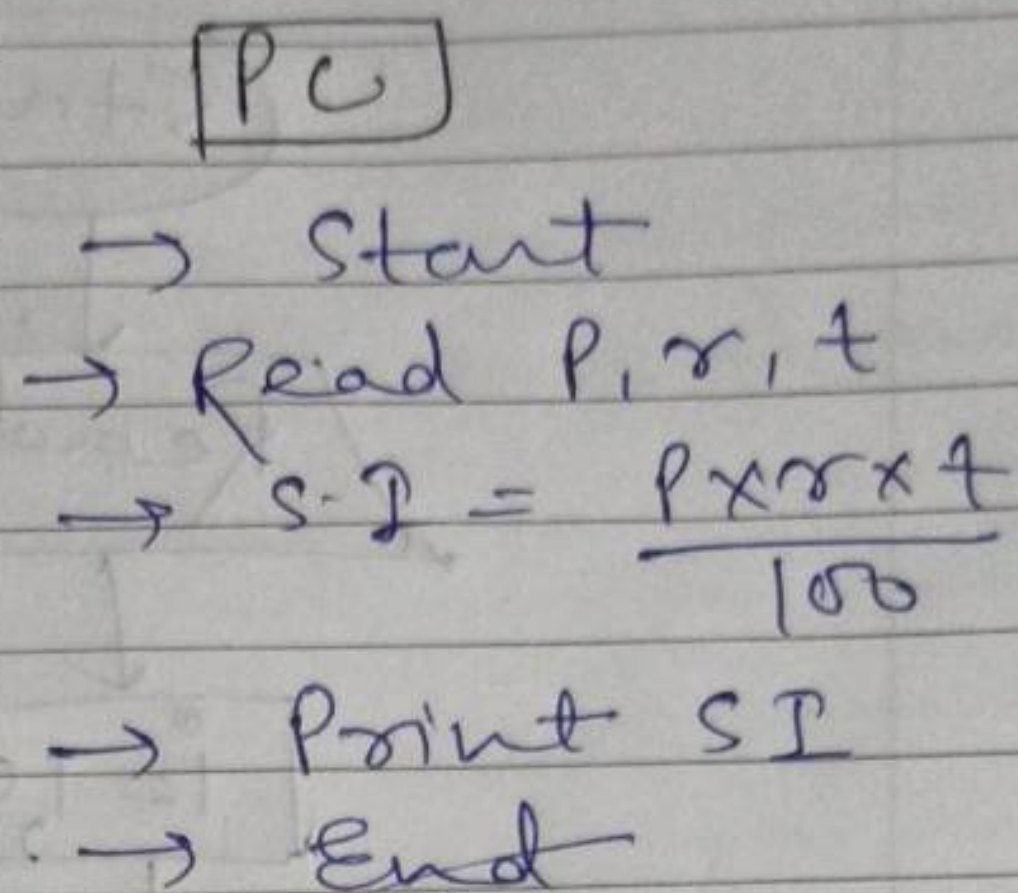 PC
→ Start
→ Read P, r, t
→ S.I = P×r×t
100
→ Print SI
→ End